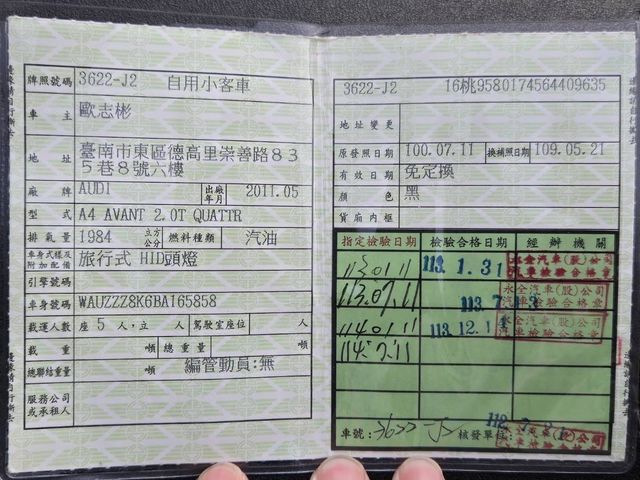 牌照號碼 3622-J2 自用小客車
車主 歐志彬
地址 臺南市東區德高里崇善路８３
５巷８號六樓
廠牌 AUDI 出廠年月 2011.05
型式 A4 AVANT 2.0T QUATTR
排氣量 1984 立方公分 燃料種類 汽油
車身式樣及附加配備 旅行式 HID頭燈
引擎號碼
車身號碼 WAUZZZ8K6BA165858
載運人數 座 5 人,立 人 駕駛室座位 人
載重 噸 總重量 噸
總聯結重量 噸 編管動員:無
服務公司或承租人
3622-J2 16桃9580174564409635
地址變更
原發照日期 100.07.11 換補照日期 109.05.21
有效日期 免定換
顏色 黑
貨廂內框
指定檢驗日期 檢驗合格日期 經辦機關
113.01.11 113.1.31 永全汽車(股)公司
汽車檢驗合格章
113.07.11 113.7 永全汽車(股)公司
汽車檢驗合格章
114.01.11 113.12.1 永全汽車(股)公司
汽車檢驗合格章
114.7.11
車號:3622-J2 核發單位: 112